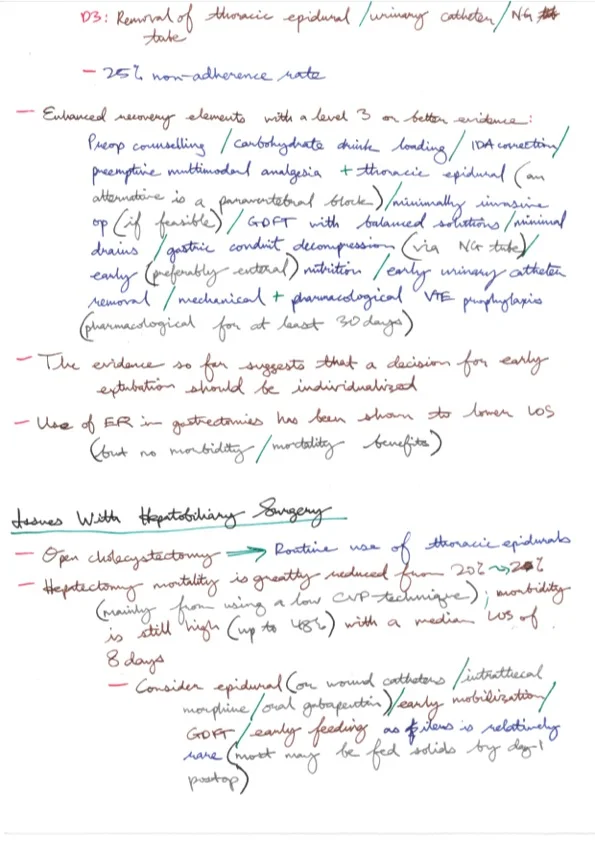 D3: Removal of thoracic epidural / urinary catheter / NG
tube
- 25% non-adherence rate
- Enhanced recovery elements with a level 3 or better evidence:
Preop counselling / carbohydrate drink loading / IDA correction /
preemptive multimodal analgesia + thoracic epidural (an
alternative is a paravertebral block) / minimally invasive
op (if feasible) / GDFT with balanced solutions / minimal
drains / gastric conduit decompression (via NG tube) /
early (preferably enteral) nutrition / early urinary catheter
removal / mechanical + pharmacological VTE prophylaxis
(pharmacological for at least 30 days)
- The evidence so far suggests that a decision for early
extubation should be individualized
- Use of ER in gastrectomies has been shown to lower LOS
(but no morbidity / mortality benefits)
Issues With Hepatobiliary Surgery
- Open cholecystectomy → Routine use of thoracic epidurals
- Hepatectomy mortality is greatly reduced from 20% → 2%
(mainly from using a low CVP technique); morbidity
is still high (up to 48%) with a median LOS of
8 days
- Consider epidural (or wound catheters / intrathecal
morphine / oral gabapentin) / early mobilization /
GDFT / early feeding as ileus is relatively
rare (most may be fed solids by day-1
postop)